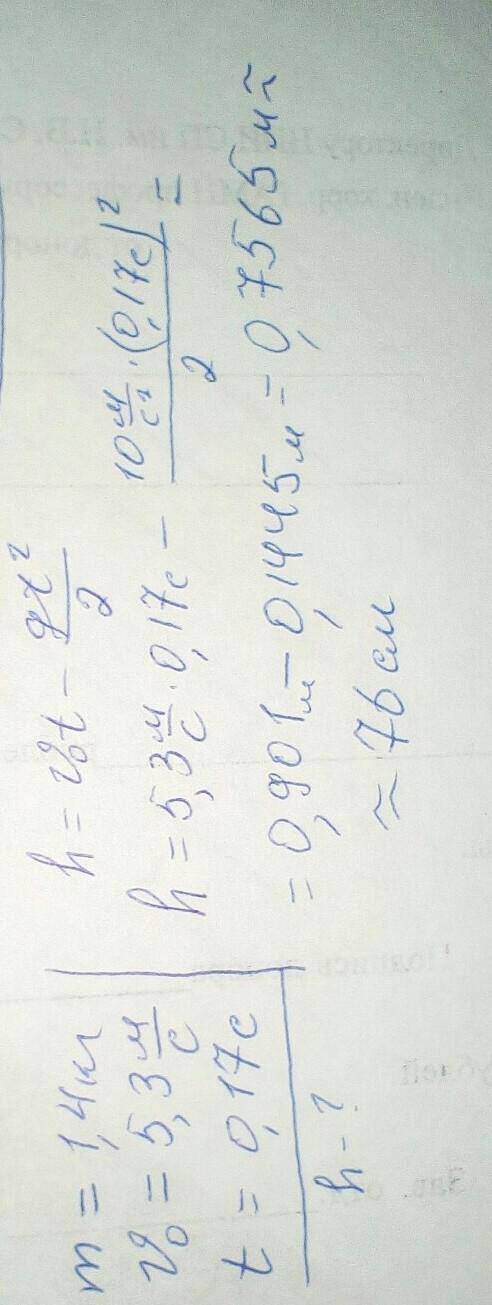 m = 1,4 кг
v₀ = 5,3 м/с
t = 0,17 с
h - ?
h = v₀t - gt²/2
h = 5,3 м/с · 0,17 с - 10 м/с² · (0,17 с)²/2 =
= 0,901 м - 0,1445 м = 0,7565 м ≈
≈ 76 см